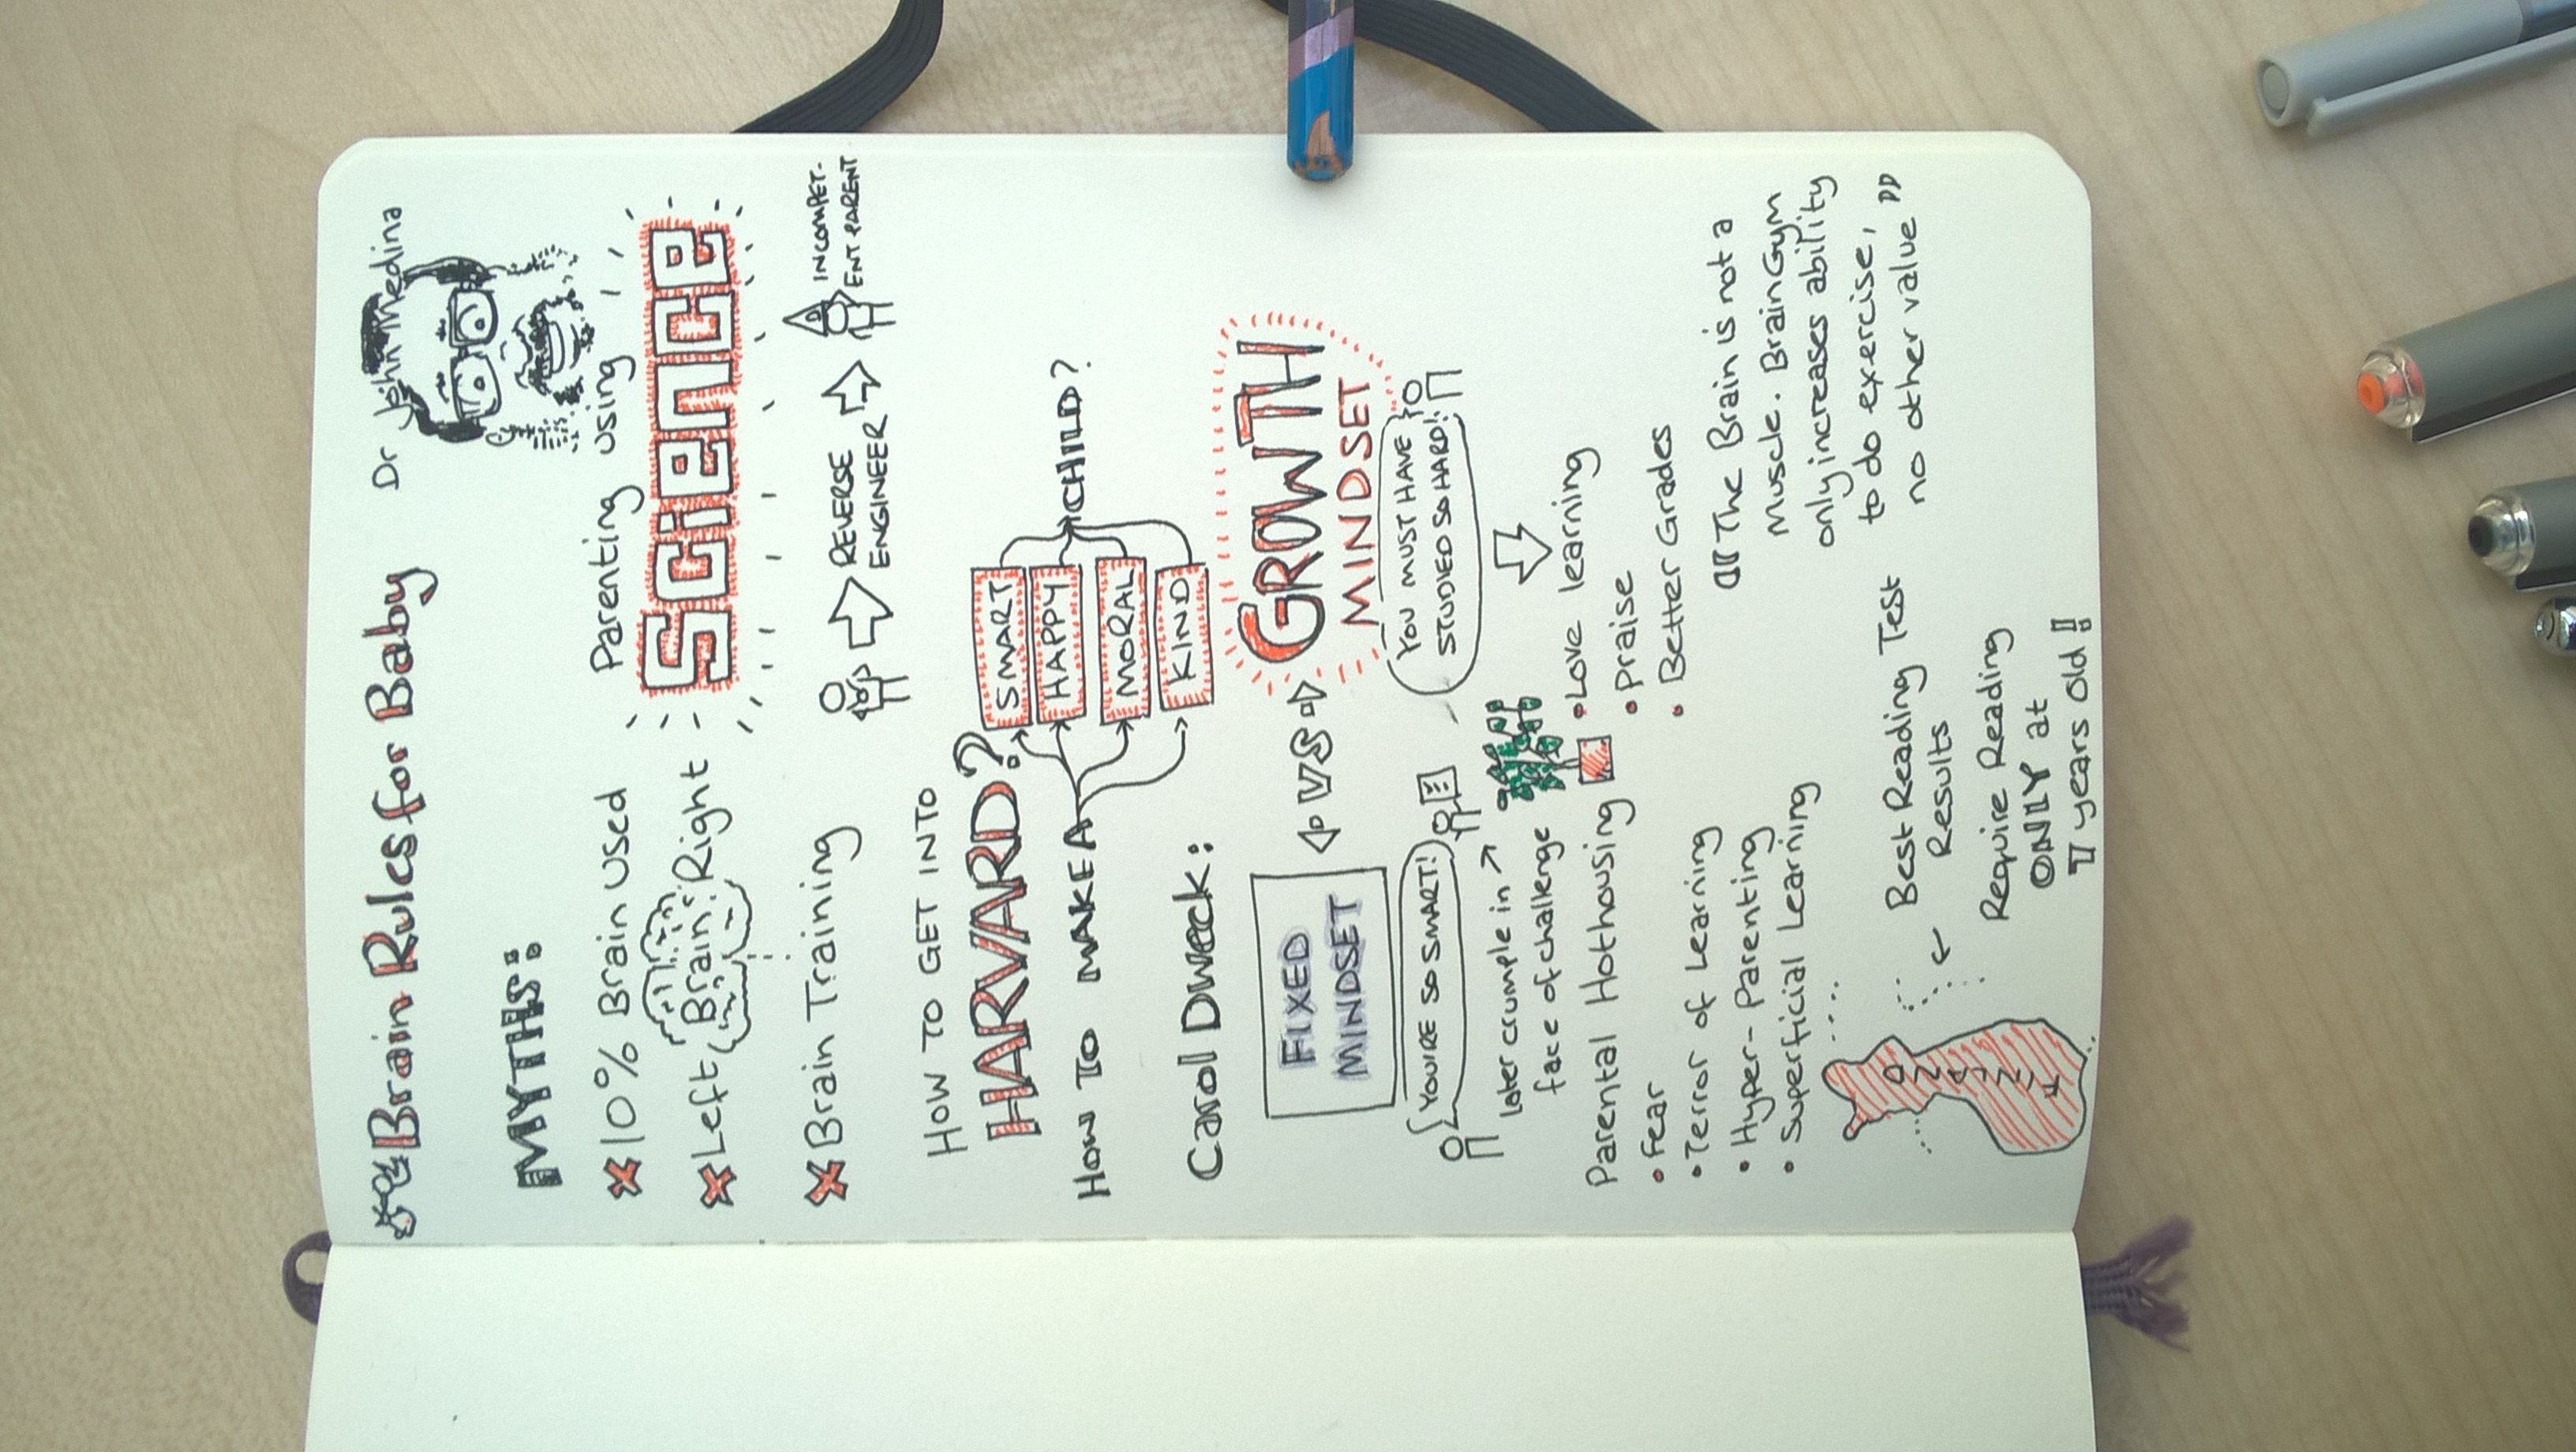 Brain Rules for Baby
Dr John Medina
MYTHS:
10% Brain used
Left Brain: Right
Brain Training
Parenting using
Science
REVERSE
ENGINEER
INCOMPET-
ENT PARENT
HOW TO GET INTO
HARVARD?
HOW TO MAKE A
SMART
HAPPY
MORAL
KIND
CHILD?
Carol Dweck:
FIXED
MINDSET
VS
GROWTH
MINDSET
YOU'RE SO SMART!
YOU MUST HAVE
STUDIED SO HARD!
later crumple in
face of challenge
Parental Hothousing
• Fear
• Terror of Learning
• Hyper-Parenting
• Superficial Learning
• Love learning
• Praise
• Better Grades
"The Brain is not a
Muscle. Brain Gym
only increases ability
to do exercise,
no other value"
FINLAND
Best Reading Test
Results
Require Reading
ONLY at
7 years old!!